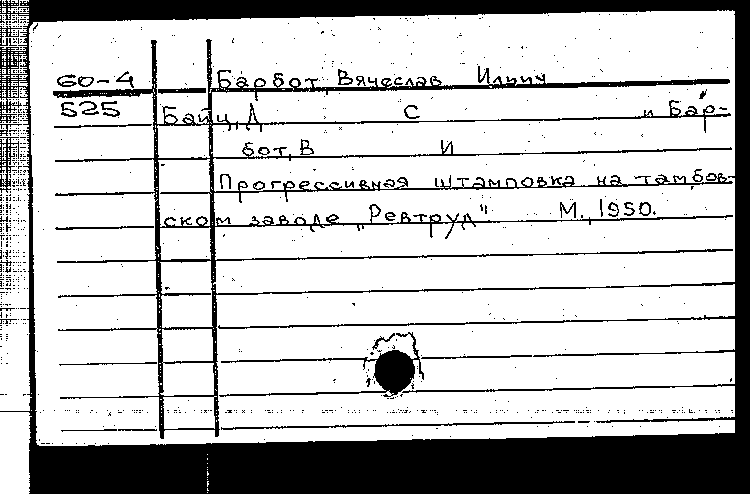 60-4 Барбот, Вячеслав Ильич
525 Байц, Д С и Бар-
бот, В И
Прогрессивная штамповка на тамбов-
ском заводе „Ревтруд". М., 1950.